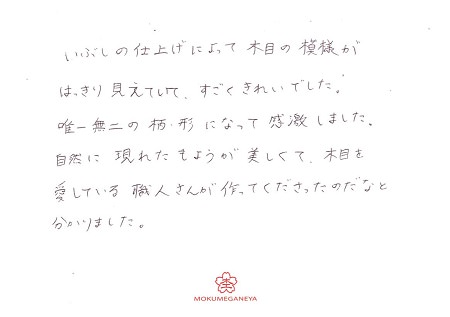 いぶしの仕上げによって木目の模様が
はっきり見えていて、すごくきれいでした。
唯一無二の柄・形になって感激しました。
自然に現れたもようが美しくて、木目を
愛している職人さんが作ってくださったのだなと
分かりました。
MOKUMEGANEYA